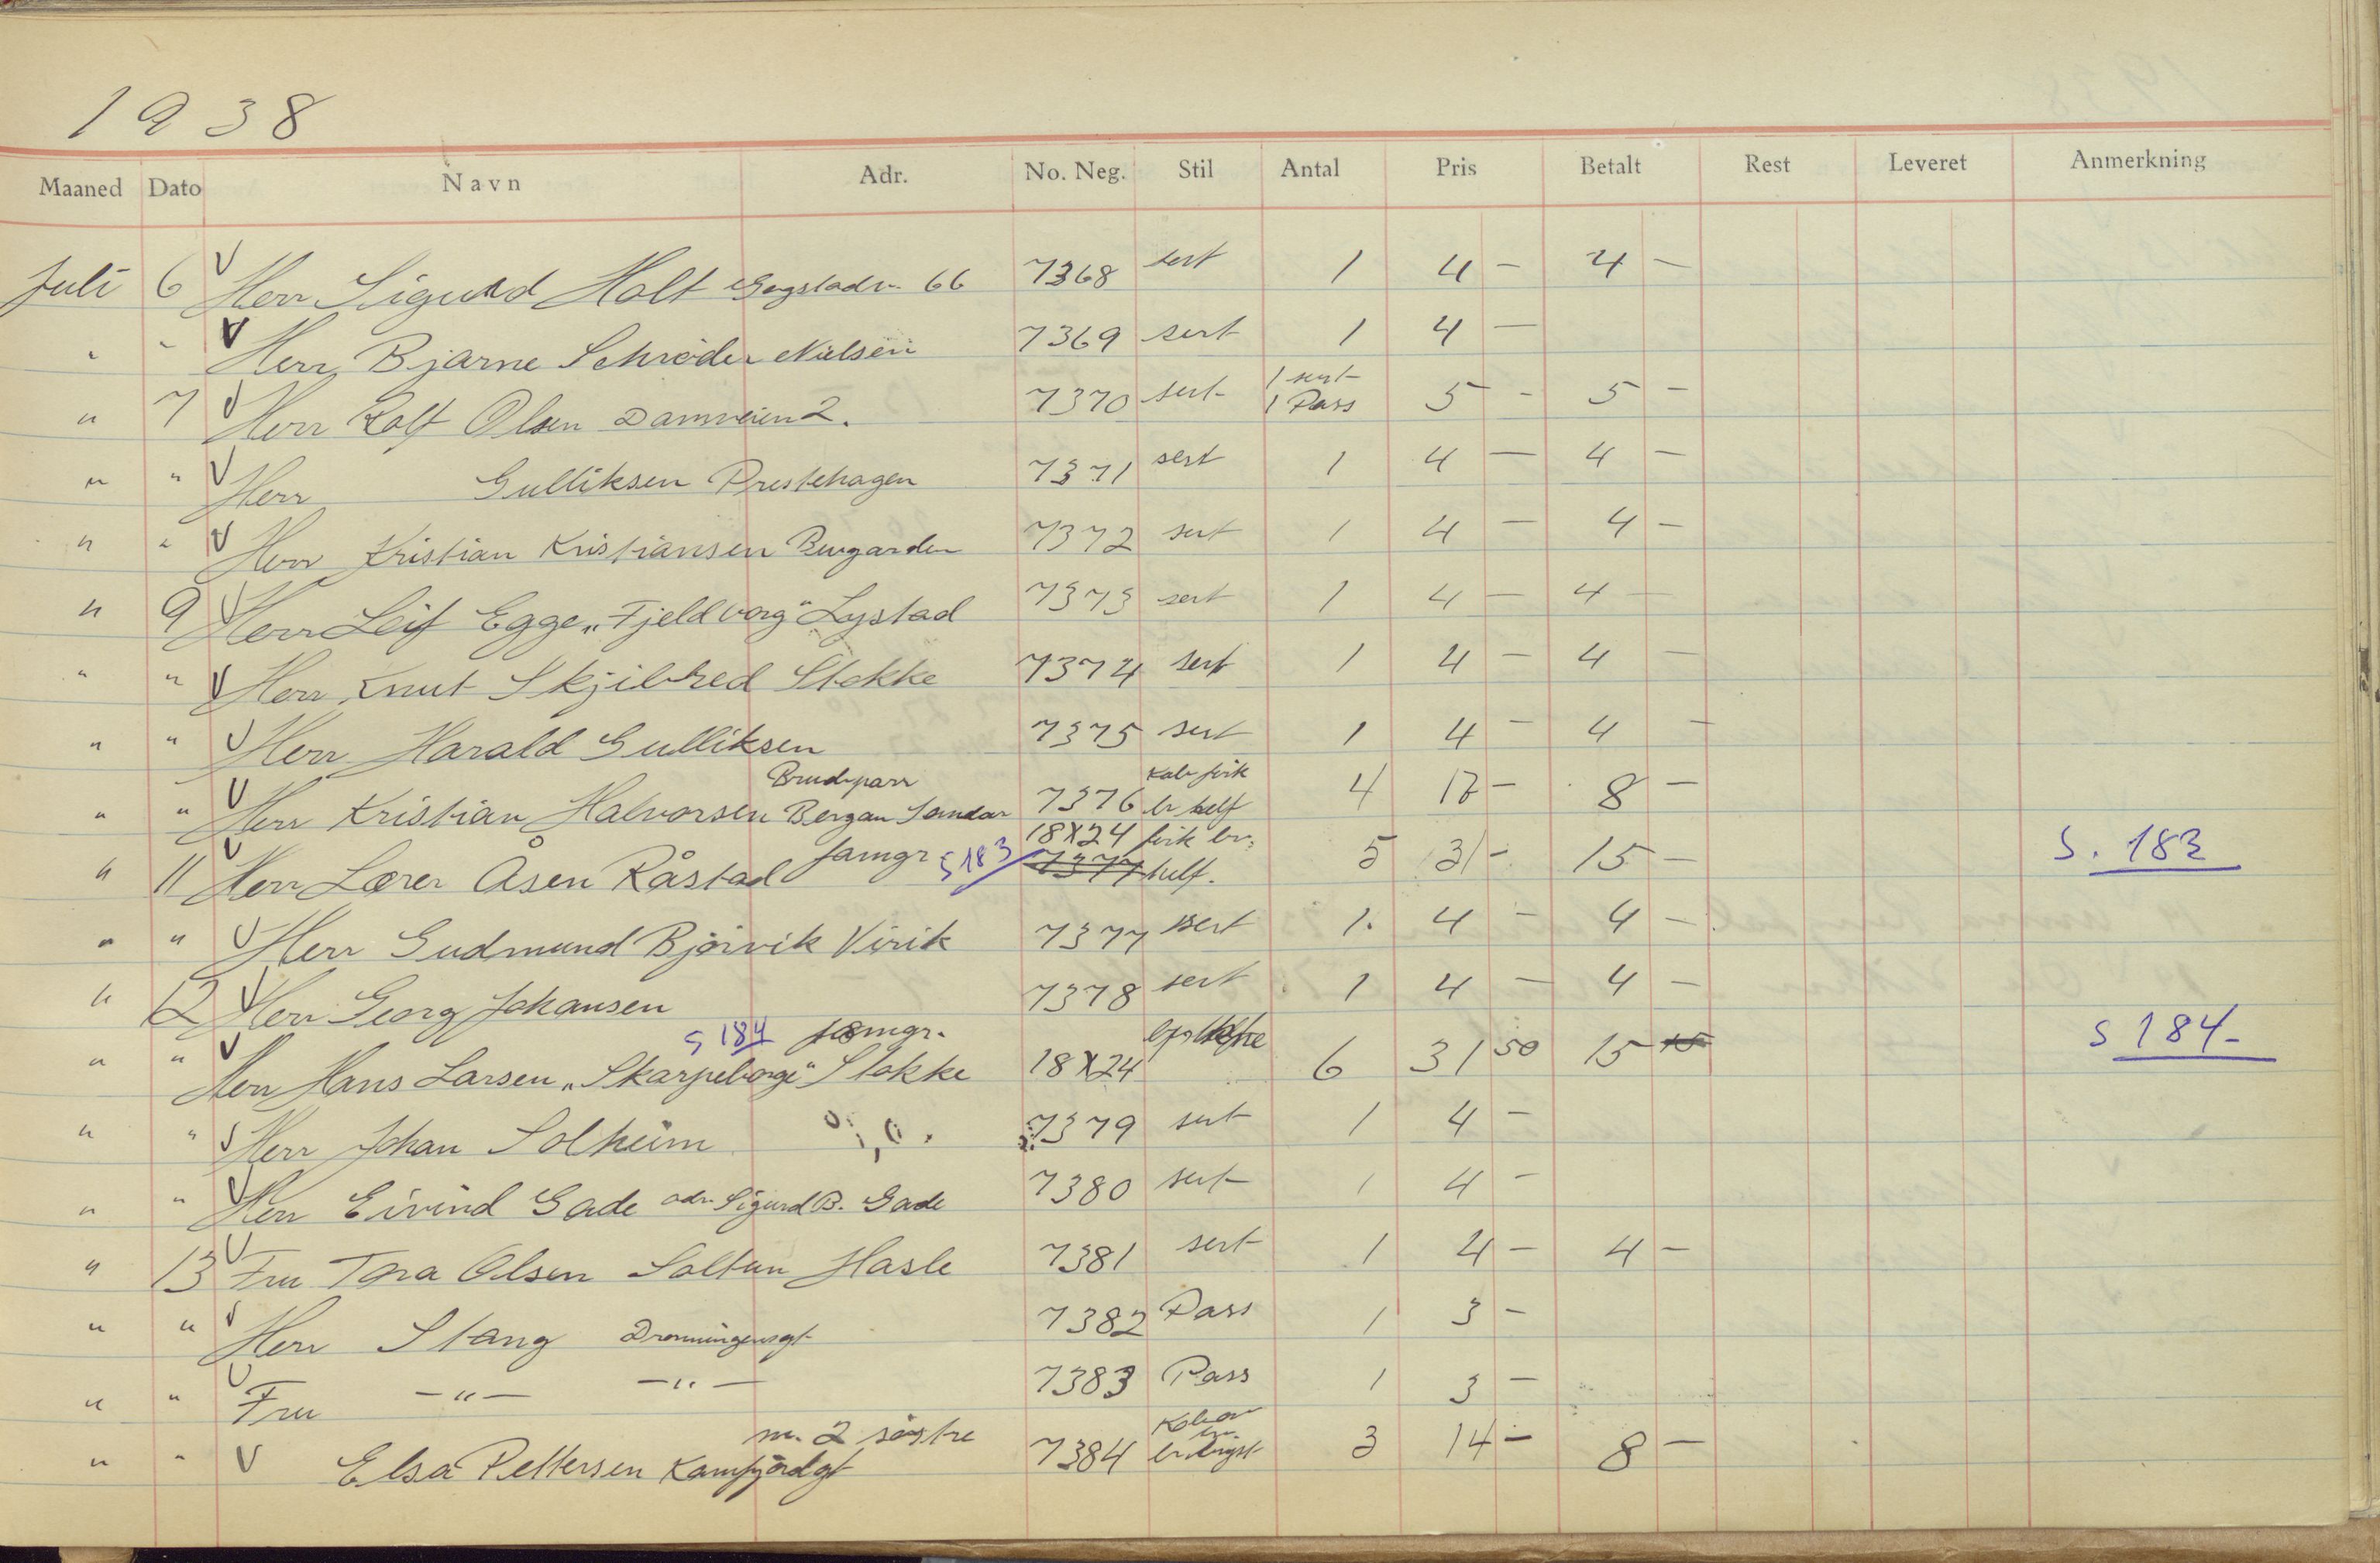 1938
Maaned Dato Navn Adr. No. Neg. Stil Antal Pris Betalt Rest Leveret Anmerkning
Juli 6 V Herr Sigurd Holt Gogstadv. 66 7368 sert 1 4 — 4 —
" " V Herr Bjarne Schrøder Nielsen 7369 sert 1 4 —
" 7 V Herr Rolf Olsen Damveien 2. 7370 sert 1 sert 1 Pass 5 - 5 -
" " V Herr Gulliksen Prestehagen 7371 sert 1 4 — 4 —
" " V Herr Kristian Kristiansen 7372 sert 1 4 — 4 —
" 9 V Herr Leif Egge „Fjeldvorg" Lystad 7373 sert 1 4 — 4 —
" " V Herr Knut Skjilbred Stokke 7374 sert 1 4 — 4 —
" " V Herr Harald Gulliksen 7375 sert 1 4 — 4 —
Brudepar Kab
" " V Herr Kristian Halvorsen Bergan 7376 br 4 - 8 —
18X24
" 11 V Herr Lærer Åsen Råstad famgr S 183 7377 5 31 - 15 — S. 183
" " V Herr Gudmund Bjørvik Virik 7377 sert 1. 4 — 4 —
" 12 V Herr Georg Johansen 7378 sert 1 4 — 4 —
S 184 famgr.
" " V Herr Hans Larsen „Skarpeborg" Stokke 18X24 6 31 50 15 S 184-
" " V Herr Johan Solheim 7379 sert 1 4 —
" " V Herr Eivind Gade adr. Sigurd B. Gade 7380 sert 1 4 —
" 13 V Fru Tora Olsen Soltun Hasle 7381 sert 1 4 — 4 —
" " V Herr Stang Dronningensgt 7382 Pass 1 3 —
" " V Fru —"— —"— 7383 Pass 1 3 —
m. 2 søstre
" " V Elsa Pettersen Kamfjordgt 7384 3 14 — 8 —